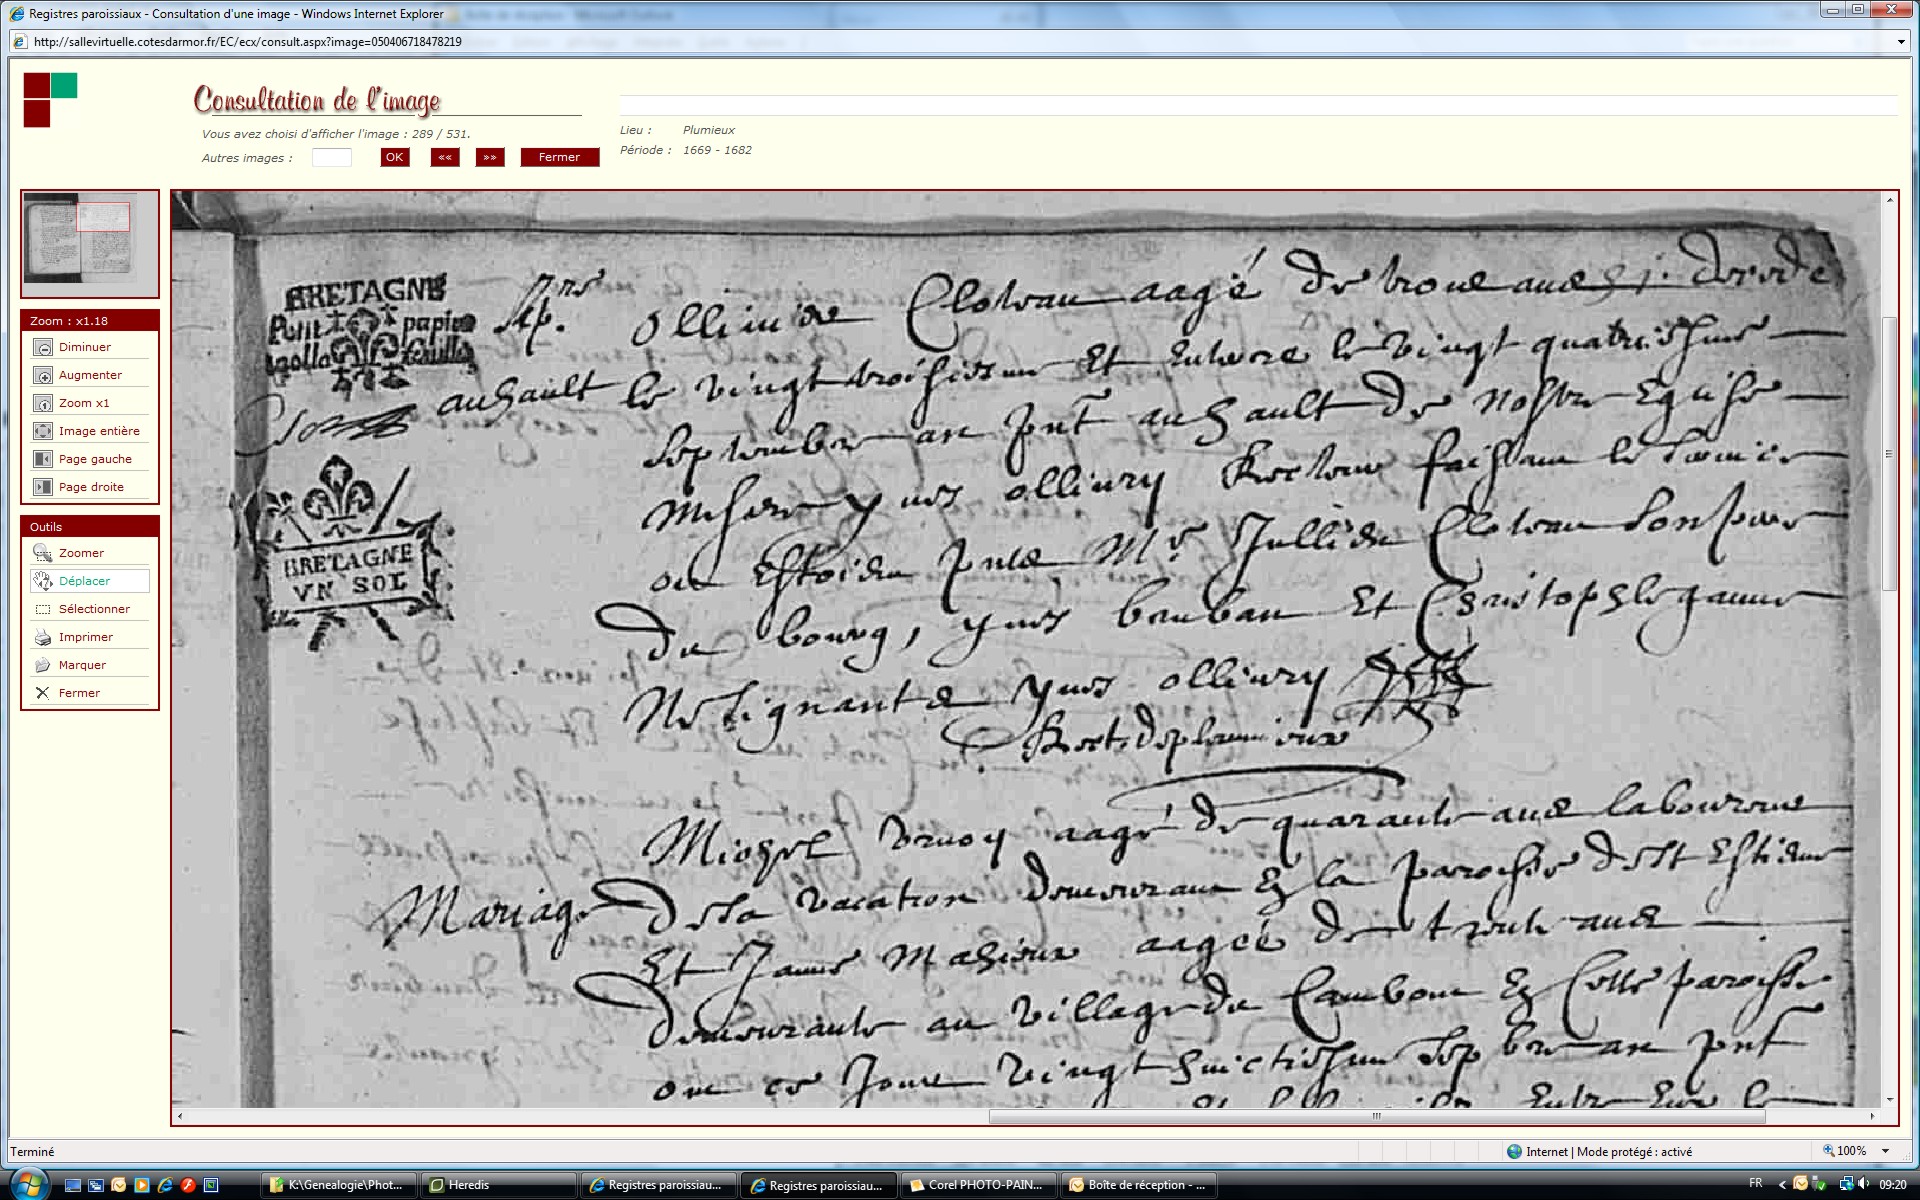 Registres paroissiaux - Consultation d'une image - Windows Internet Explorer
http://sallevirtuelle.cotesdarmor.fr/EC/ecx/consult.aspx?image=050406718478219
Consultation de l'image
Vous avez choisi d'afficher l'image : 289 / 531.
Autres images :
OK
««
»»
Fermer
Lieu : Plumieux
Période : 1669 - 1682
Zoom : x1.18
Diminuer
Augmenter
Zoom x1
Image entière
Page gauche
Page droite
Outils
Zoomer
Déplacer
Sélectionner
Imprimer
Marquer
Fermer
BRETAGNE
papier
BRETAGNE
VN SOL
7re
Sep.
Cloteau aagé de
auhault le vingt troisiesme Et Enterré le vingt quatriesme
septembre an pnt au hault de nostre Eglise
missire yves ollivry Recteur faissant le
ou Estoien pnts Mr Jullien Cloteau son pere
du bourg, yves bauban Et Christophle
Ne signants yves ollivry
Rect. de plumieux
Michel aagé de quarante ans laboureur
Mariage
de sa vacation demeurant En la paroisse de St Estienne
Et Janne Mahieux aagee de trente ans
demeurante au village de Cambout En Cette paroisse
on ce Jour vingt huictiesme Sepbre an pnt
Entre Eux le
Terminé
Internet | Mode protégé : activé
100%
K:\Genealogie\Phot...
Heredis
Registres paroissiau...
Registres paroissiau...
Corel PHOTO-PAIN...
Boîte de réception - ...
FR
09:20